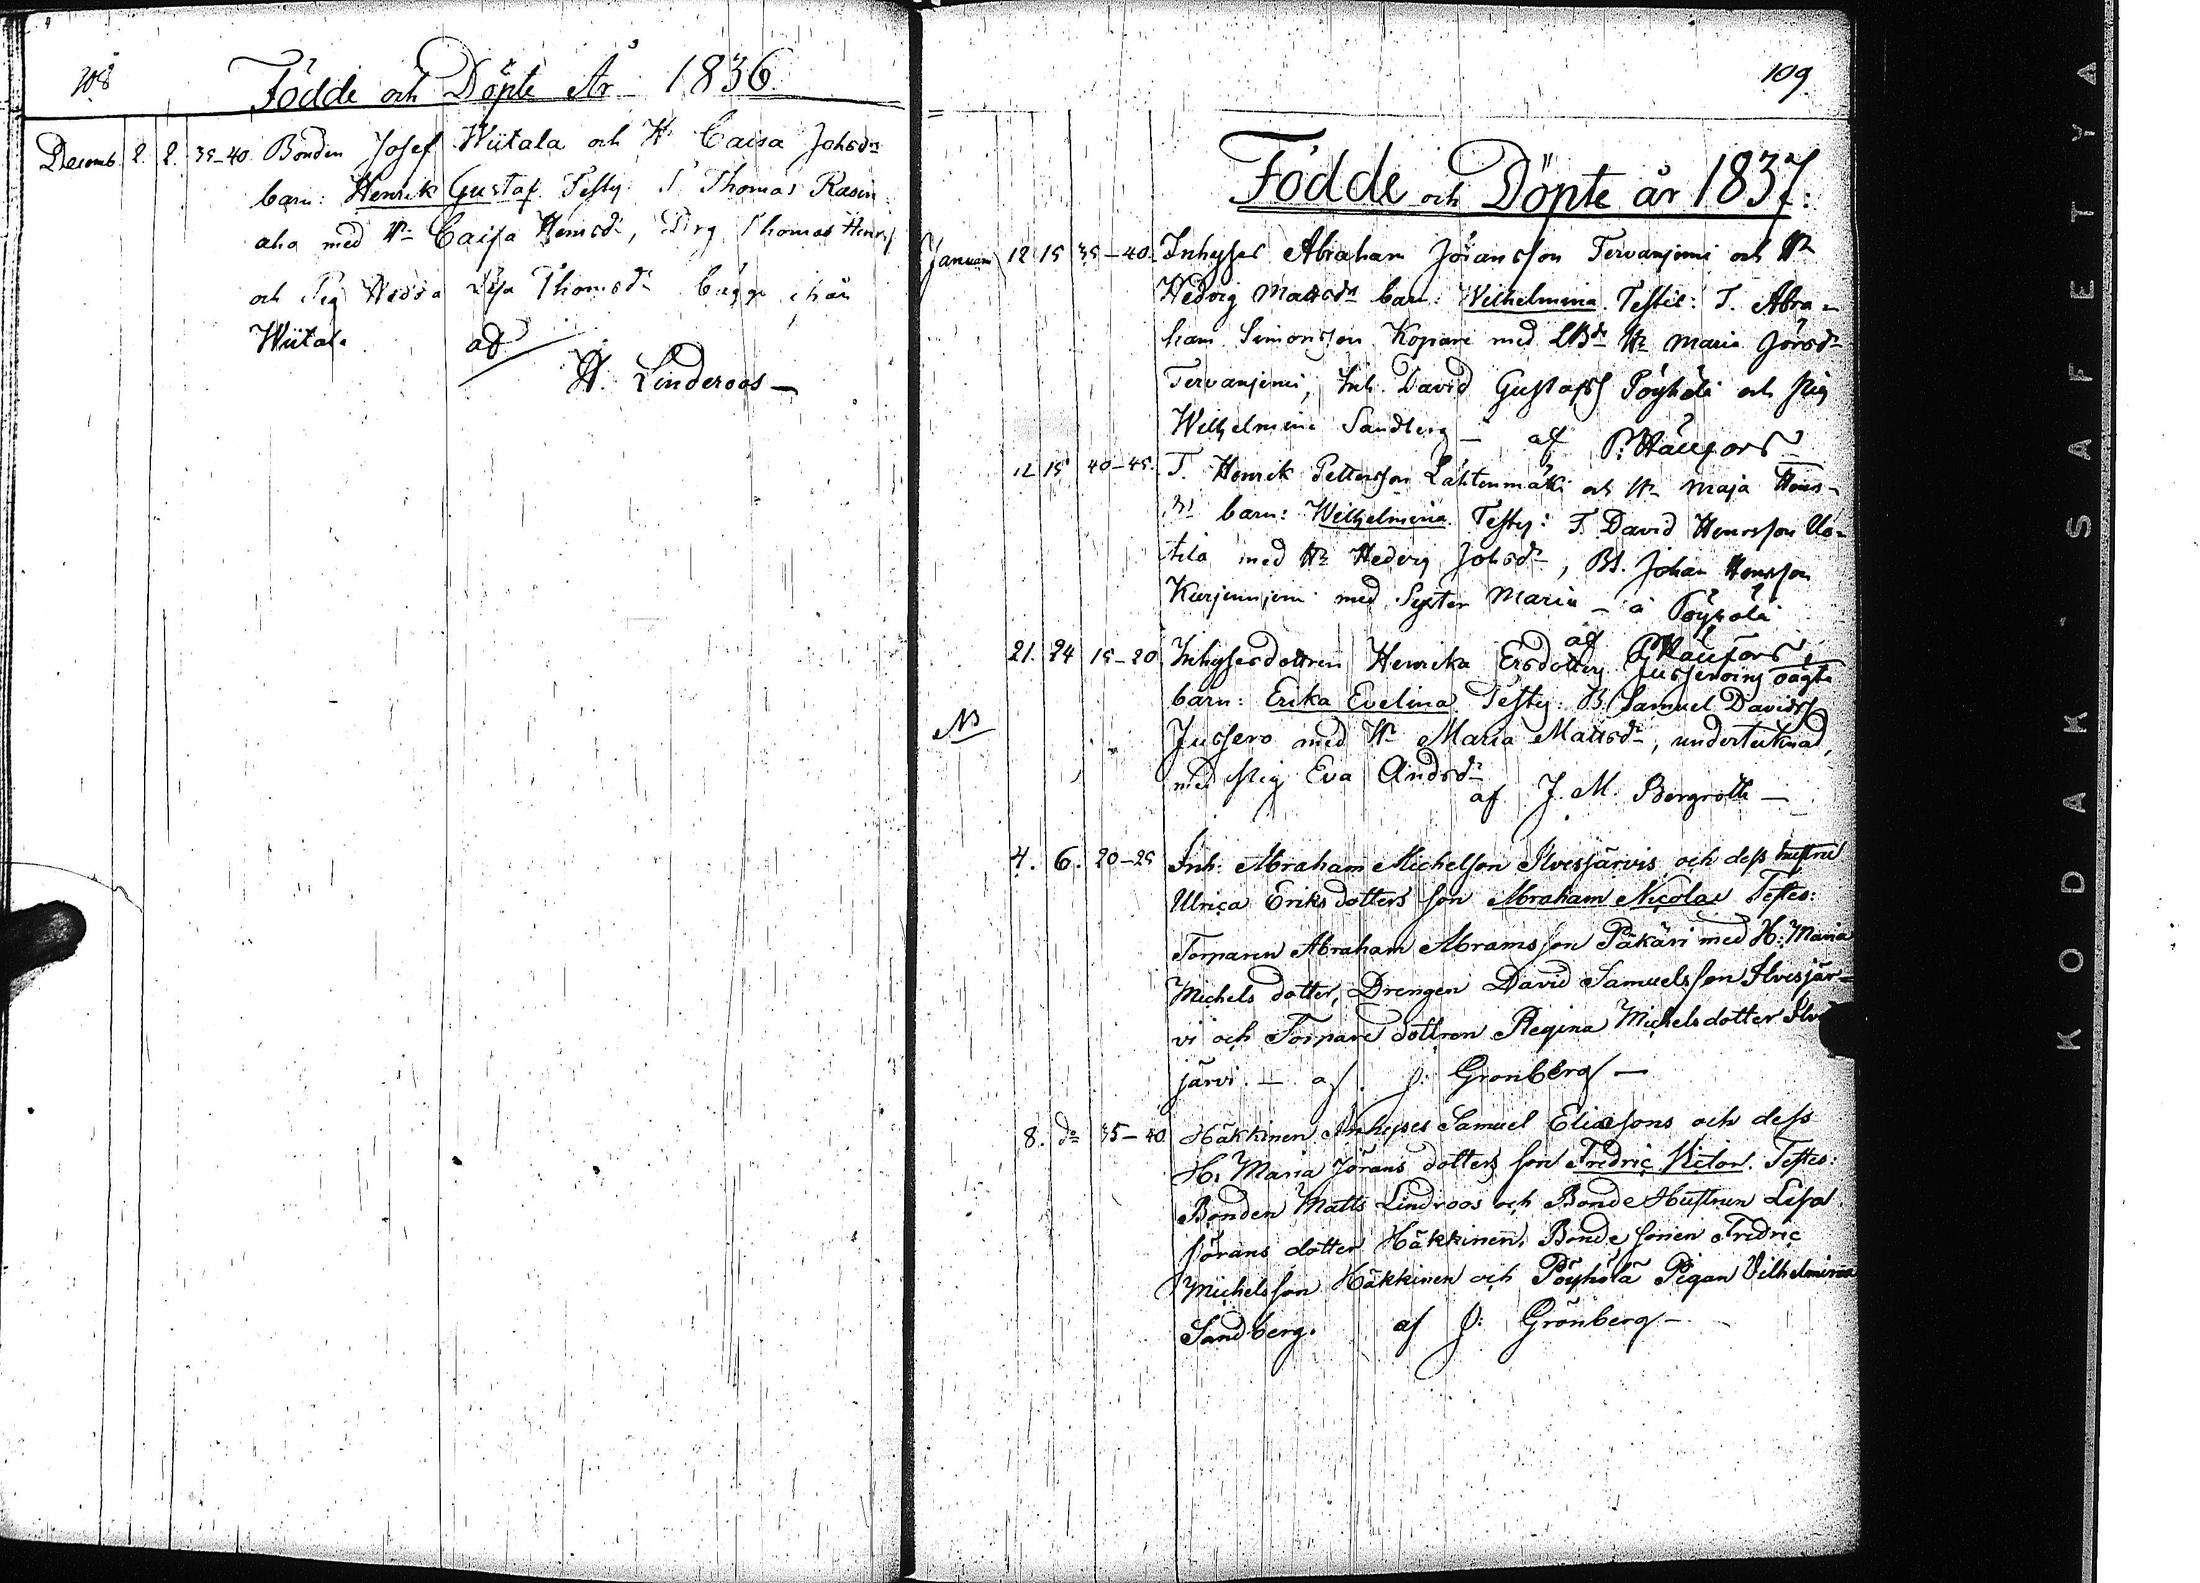 108
Födde och Döpte År 1836.
Decemb. 2. 2. 35-40. Bonden Josef Wiitala och H. Caisa Johsdr
barn: Henrik Gustaf. Testy. T. Thomas Rasin-
aho med Hu Caisa Henrsdr, Drg Thomas Henrss
och Pig Hedda Lisa Thomsdr bägge ifrån
Wiitala af
H. Linderoos
109
Födde och Döpte år 1837.
Januari 12 15 35-40. Inhyses Abraham Jöransson Tervaniemi och Hu
Hedvig Mattsdr barn: Wilhelmina. Testic: T. Abra-
ham Simonsson Kopare med Hu Maria Jörsdr
Tervaniemi, Inh. David Gustafss Pöyhölä och Pig
Wilhelmina Sandberg af
12 15 40-45. T. Henrik Pettersson Lähtenmäki och Hu Maja Henrs-
dr barn: Wilhelmina. Testy: T. David Henrsson Uo-
tila med Hu Hedvig Johsdr, Bs. Johan Henrsson
Kurjenniemi med Syster Maria - a Pöyhölä
af
21. 24 15-20 Inhysesdottren Henrika Ersdotters
barn: Erika Evelina. Testy: B. Samuel Davidss
NB Jussero med Hu Maria Mattsdr, undertecknad,
med Pig Eva Andsdr
af J. M. Bergroth
4. 6. 20-25 Inh: Abraham Michelson Ilvesjärvis och dess hustru
Ulrica Eriksdotters son Abraham Nicolai Testes:
Torparen Abraham Abramsson Päkäri med H: Maria
Michels dotter, Drengen David Samuelsson Ilvesjär-
vi och Torpare dottren Regina Michelsdotter Ilves
järvi. - af J: Grönberg
8. do 35-40 Häkkinen Inhyses Samuel Eliæsons och dess
H: Maria Jörans dotters son Fredric Victor. Testes:
Bonden Matts Lindroos och Bonde Hustrun Lisa
Jörans dotter Häkkinen, Bonde sonen Fredric
Michelsson Häkkinen och Pöyhölä Pigan Vilhelmina
Sandberg. af J: Grönberg
KODAK SAFETY A